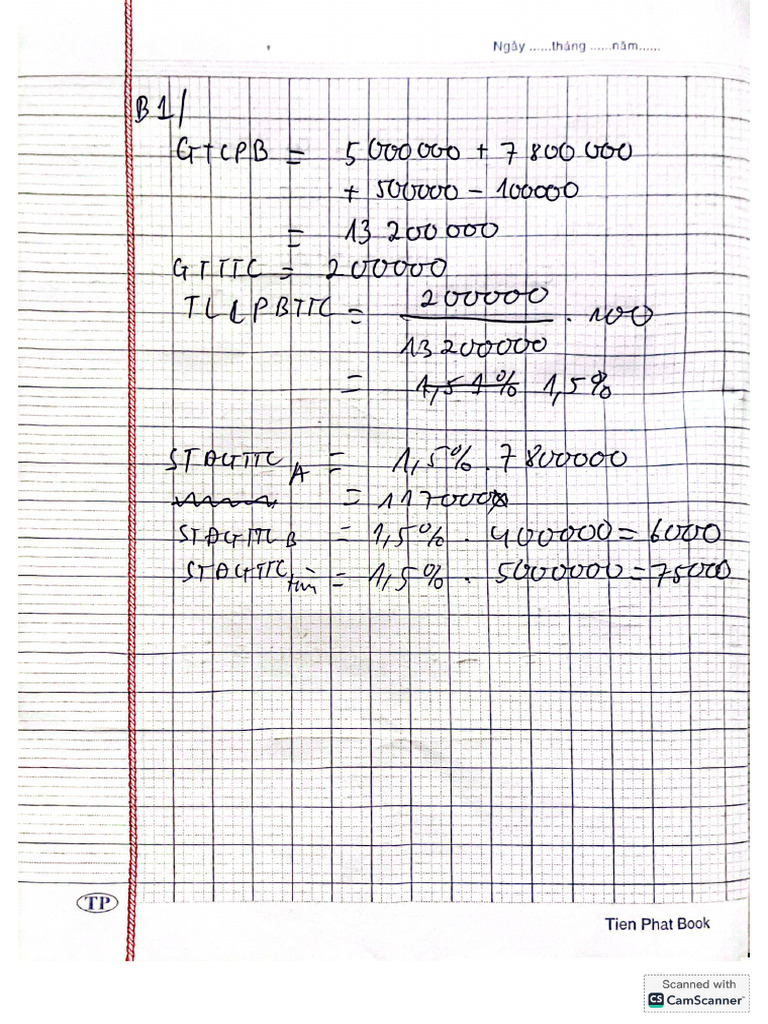 Ngày ......tháng ......năm......
B1/
GTCPB = 5000000 + 7800000
+ 500000 - 100000
= 13200000
GTTTC = 200000
TLLPBTTC = 200000 / 13200000 . 100
= 1,51% 1,5%
STAGTTC A = 1,5% . 7800000
= 117000
STAGTTC B = 1,5% . 400000 = 6000
STAGTTC tàu = 1,5% . 5000000 = 75000
TP
Tien Phat Book
Scanned with
CS CamScanner